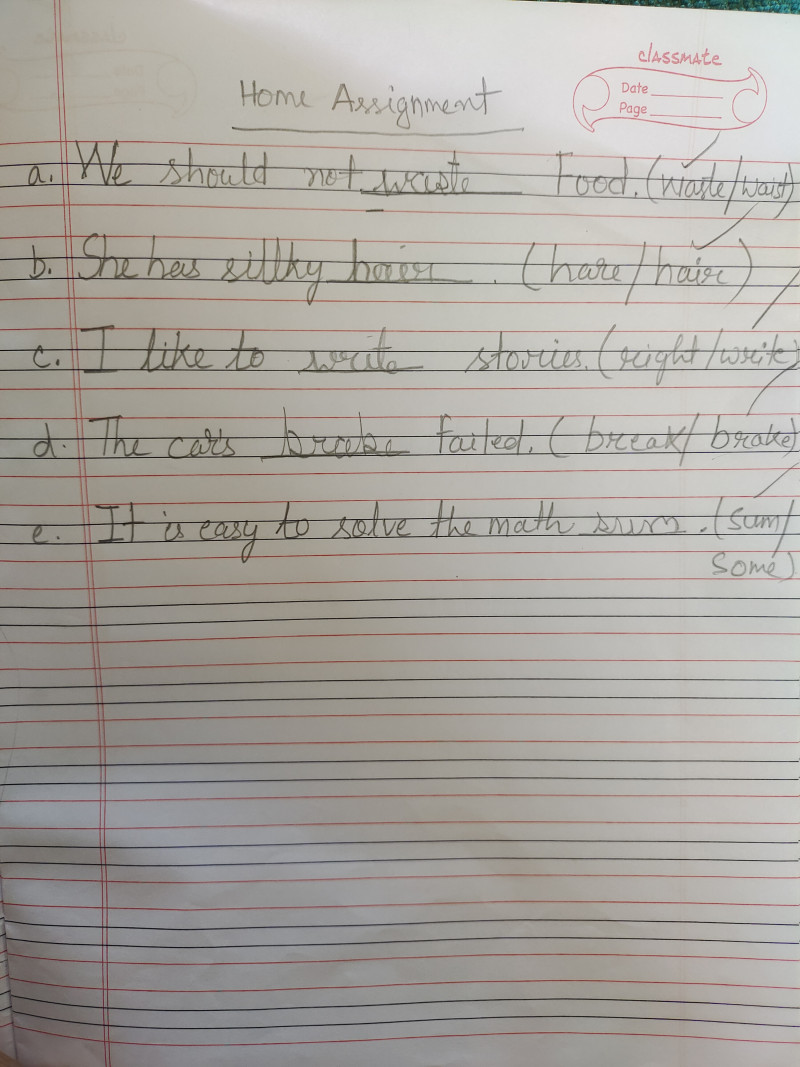 classmate
Date
Page
Home Assignment
a. We should not waste Food. (waste/waist)
b. She has sillky hair. (hare/hair)
c. I like to write stories. (right/write)
d. The car's brake failed. (break/brake)
e. It is easy to solve the math sum. (sum/
some)